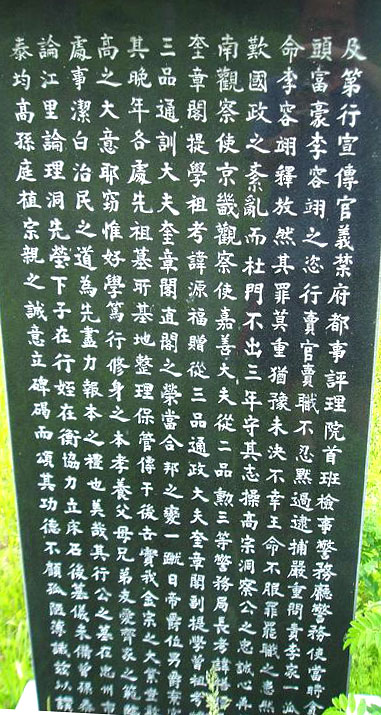 及第行宣傳官義禁府都事評理院首班檢事警務廳警務使當時金
頭富豪李容翊之恣行賣官賣職不忍默過逮捕嚴重問責李家一派
命李容翊釋放然其罪莫重猶豫未決不幸王命不服罪罷職之憲然
歎國政之紊亂而杜門不出三年守其志操高宗洞察公之忠誠心再
南觀察使京畿觀察使嘉善大夫從二品勲三等警務局長考諱
奎章閣提學祖考諱源福贈從三品通政大夫奎章閣副提學曾祖考
三品通訓大夫奎章閣直閣之榮當合邦之變一蹴日帝爵位男爵
其晚年各處先祖墓所墓地整理保管傳于後古實我金宗之大業
高之大意耶窃惟好學篤行修身之本孝養父母兄弟友愛齊家之範
處事潔白治民之道為先盡力報本之禮也美哉其行公之墓在忠州市
論江里論理洞先塋下子在行姪在衡協力立床石後墓儀未備曾孫泰
泰均高孫庭植宗親之誠意立碑碣而頌其功德不顧孤陋薄識玆以